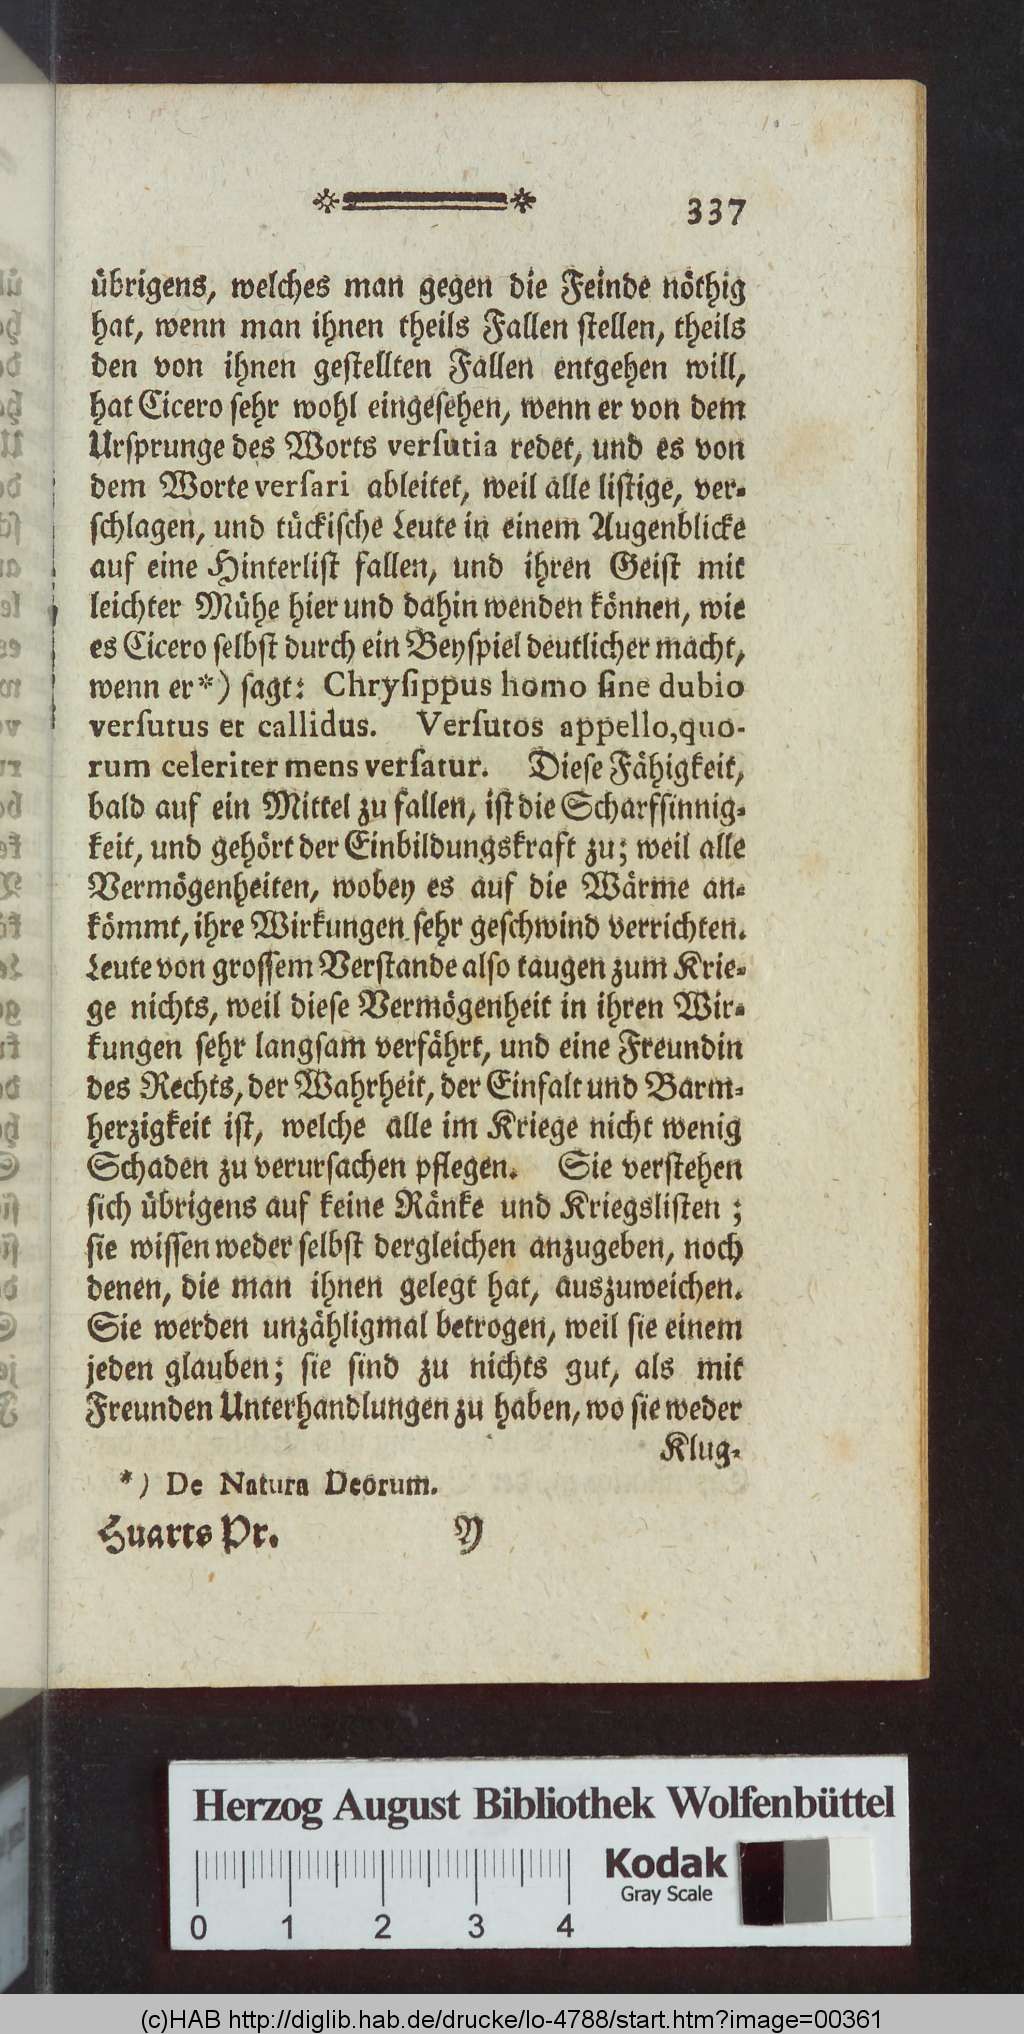 337
übrigens, welches man gegen die Feinde nöthig
hat, wenn man ihnen theils Fallen stellen, theils
den von ihnen gestellten Fallen entgehen will,
hat Cicero sehr wohl eingesehen, wenn er von dem
Ursprunge des Worts versutia redet, und es von
dem Worte versari ableitet, weil alle listige, ver-
schlagen, und tückische Leute in einem Augenblicke
auf eine Hinterlist fallen, und ihren Geist mit
leichter Mühe hier und dahin wenden können, wie
es Cicero selbst durch ein Beyspiel deutlicher macht,
wenn er*) sagt: Chrysippus homo sine dubio
versutus et callidus. Versutos appello, quo-
rum celeriter mens versatur. Diese Fähigkeit,
bald auf ein Mittel zu fallen, ist die Scharfsinnig-
keit, und gehört der Einbildungskraft zu; weil alle
Vermögenheiten, wobey es auf die Wärme an-
kömmt, ihre Wirkungen sehr geschwind verrichten.
Leute von grossem Verstande also taugen zum Krie-
ge nichts, weil diese Vermögenheit in ihren Wir-
kungen sehr langsam verfährt, und eine Freundin
des Rechts, der Wahrheit, der Einfalt und Barm-
herzigkeit ist, welche alle im Kriege nicht wenig
Schaden zu verursachen pflegen. Sie verstehen
sich übrigens auf keine Ränke und Kriegslisten ;
sie wissen weder selbst dergleichen anzugeben, noch
denen, die man ihnen gelegt hat, auszuweichen.
Sie werden unzähligmal betrogen, weil sie einem
jeden glauben; sie sind zu nichts gut, als mit
Freunden Unterhandlungen zu haben, wo sie weder
Klug-
*) De Natura Deorum.
Huarts Pr. Y
Herzog August Bibliothek Wolfenbüttel
Kodak
Gray Scale
0 1 2 3 4
(c)HAB http://diglib.hab.de/drucke/lo-4788/start.htm?image=00361